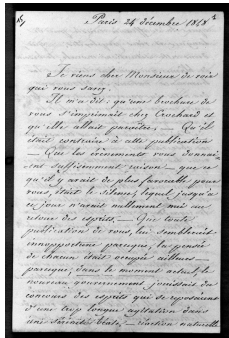 Paris 24 décembre 1868
Je viens cher Monsieur de voir
que vous savez.
Il m'a dit: qu'une brochure de
vous s'imprimait chez Crochard et
qu'elle allait paraître. — Qu'il
était contraire à cette publication
— Que les évènements vous donnaient
suffisamment raison — que ce
qu'il y avait de plus favorable pour
vous, était le silence, lequel jusqu'à
ce jour n'avait nullement nui au
retour des esprits. — Que toute
publication de vous, lui semblerait
innopportune parceque, la pensée
de chacun était occupée ailleurs —
parceque, dans le moment actuel, le
nouveau gouvernement jouissait du
concours des esprits qui se reposaient
d'une trop longue agitation dans
une sérénité béate, — réaction naturelle